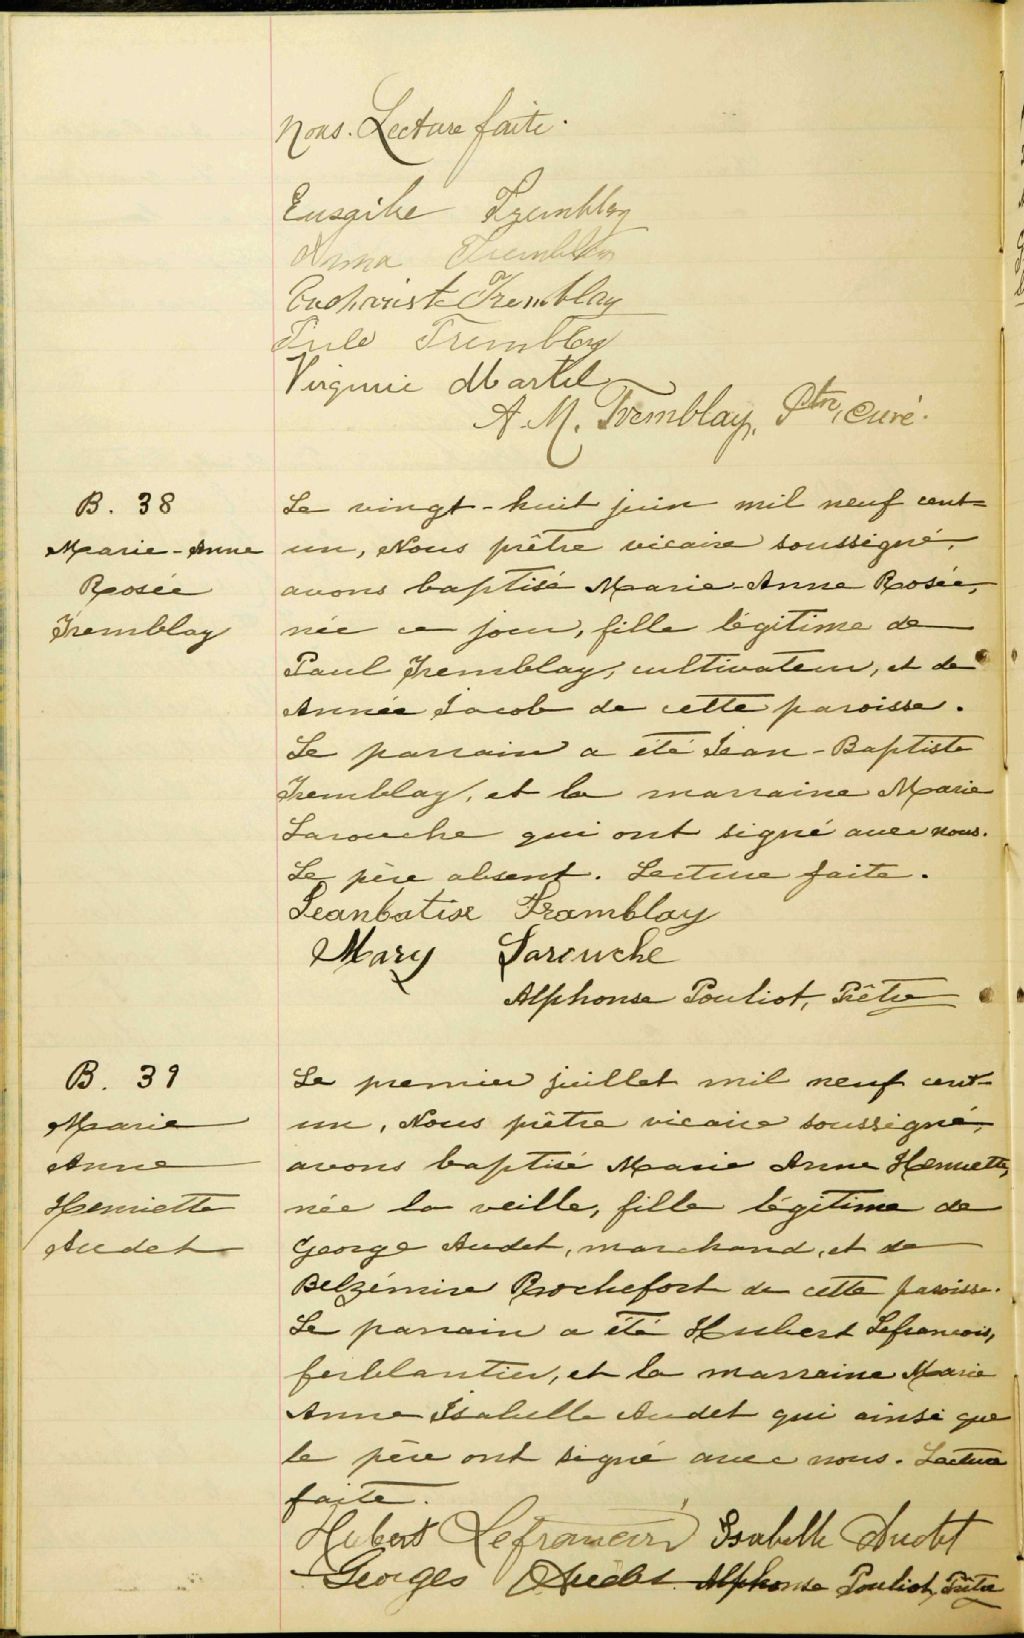 nous. Lecture faite.
Eusèbe Tremblay
Anna Tremblay
Euchariste Tremblay
Tremblay
Virginie Martel
A. M. Tremblay, Ptre, Curé.
B. 38
Marie-Anne
Rosée
Tremblay
Le vingt-huit juin mil neuf cent-
un, Nous prêtre vicaire soussigné,
avons baptisé Marie-Anne Rosée,
née ce jour, fille légitime de
Paul Tremblay, cultivateur, et de
Année Jacob de cette paroisse.
Le parrain a été Jean-Baptiste
Tremblay, et la marraine Marie
Larouche qui ont signé avec nous.
Le père absent. Lecture faite.
Jeanbatise Tramblay
Mary Larouche
Alphonse Pouliot, Prêtre
B. 39
Marie
Anne
Henriette
Audet
Le premier juillet mil neuf cent-
un, Nous prêtre vicaire soussigné,
avons baptisé Marie Anne Henriette,
née la veille, fille légitime de
George Audet, marchand, et de
Belzémire Rochefort de cette paroisse.
Le parrain a été Hubert Lefrancois,
ferblantier, et la marraine Marie
Anne Isabelle Audet qui ainsi que
le père ont signé avec nous. Lecture
faite.
Hubert Lefrancois Isabelle Audet
Georges Audet Alphonse Pouliot, Prêtre